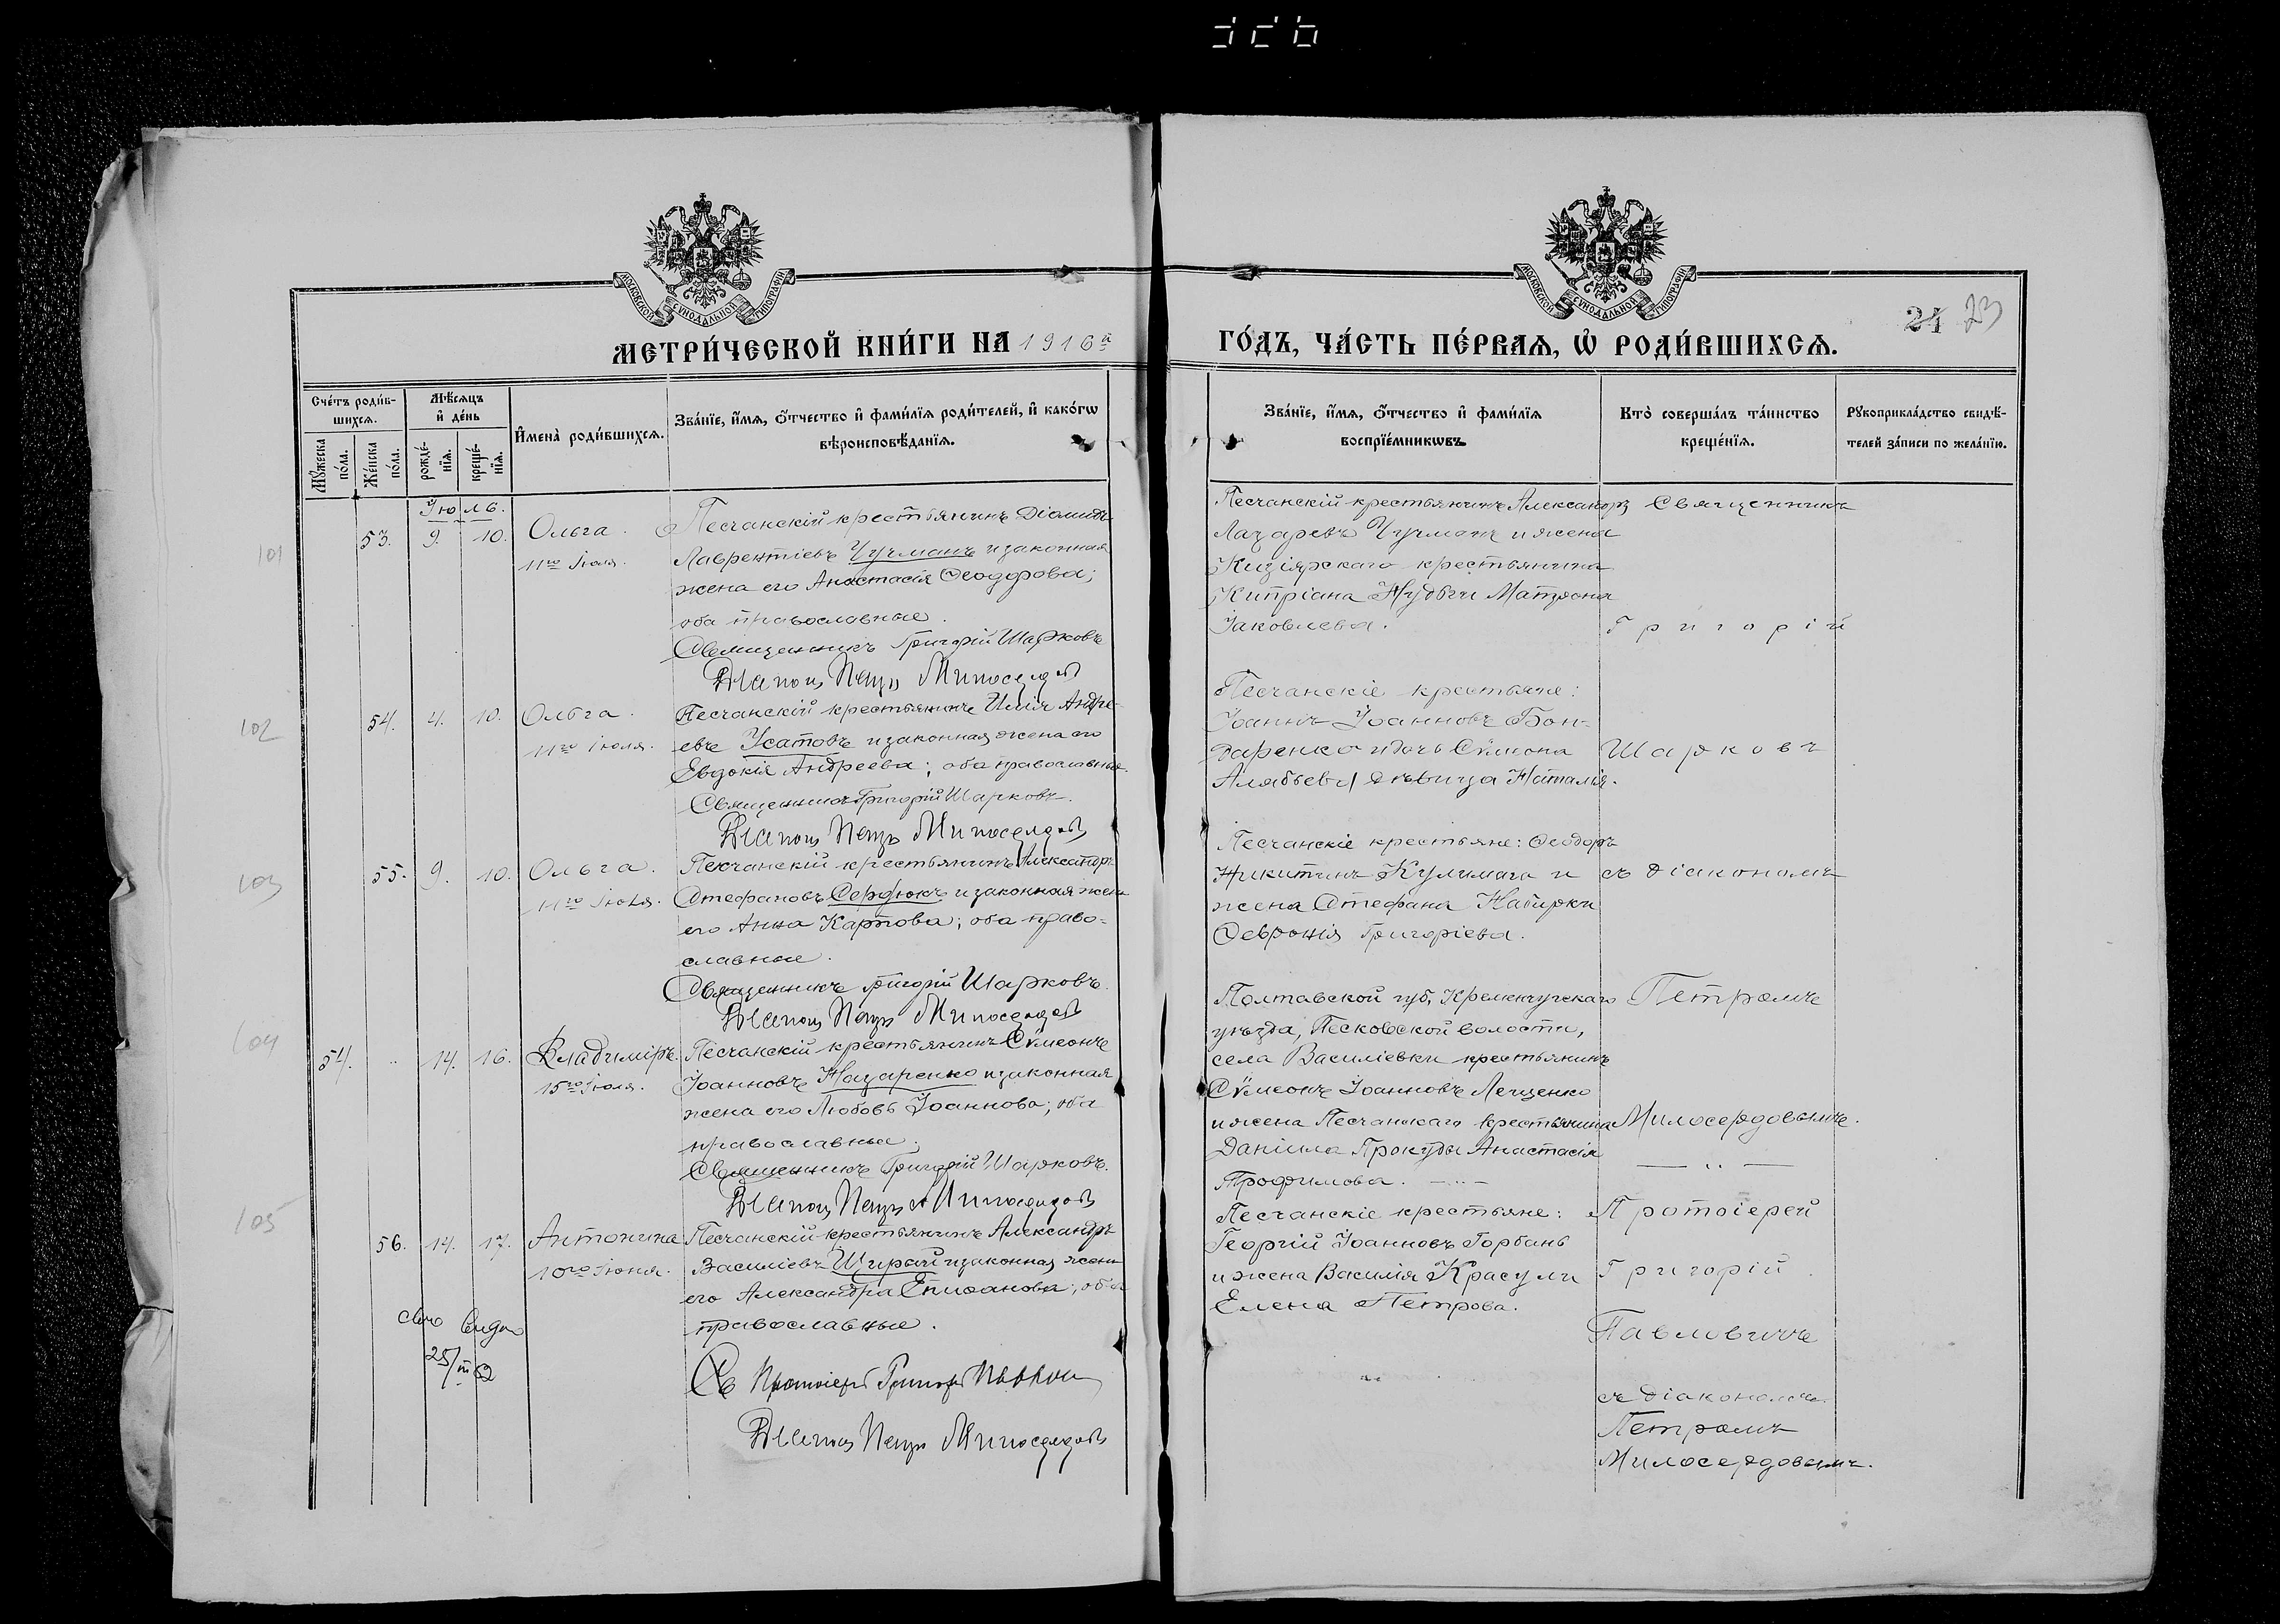 МЕТРИ́ЧЕСКОЙ КНИ́ГИ НА 1916й
ГО́ДЪ, ЧА́СТЬ ПЕ́РВАѦ, Ѡ҆ РОДИ́ВШИХСѦ.
24 23
Сче́тъ роди́в-
шихсѧ.
Мꙋ́жеска по́ла.
Же́нска по́ла.
Мѣ́сѧцъ и҆ де́нь
рожде́-нїѧ.
креще́-нїѧ.
И҆мена̀ роди́вшихсѧ.
Зва́нїе, и҆́мѧ, ѻ҆́тчество и҆ фами́лїѧ роди́телей, и҆ како́гѡ
вѣроисповѣ́данїѧ.
Зва́нїе, и҆́мѧ, ѻ҆́тчество и҆ фами́лїѧ
воспрїе́мникѡвъ.
Кто̀ соверша́лъ та́инство
креще́нїѧ.
Рꙋкоприкла́дство свидѣ́-
телей за́писи по жела́нїю.
Іюль.
101
53. 9. 10. Ольга.
11го Іюля.
Песчанскій крестьянинъ Діомидъ
Лаврентіевъ Чучманъ и законная
жена его Анастасія Ѳеодорова;
оба православные.
Священникъ Григорій Шарковъ
Діаконъ Петръ Милосердовъ
Песчанскій крестьянинъ Александръ
Лазаревъ Чучманъ и жена
Кизіярскаго крестьянина
Кипріана Нудьги Матрона
Іаковлева.
102
54. 4. 10. Ольга.
11го Іюля.
Песчанскій крестьянинъ Илія Андре-
евъ Усатовъ и законная жена его
Евдокія Андреева; оба православные.
Священникъ Григорій Шарковъ.
Діаконъ Петръ Милосердовъ
Песчанскіе крестьяне:
Іоаннъ Іоанновъ Бон-
даренко и дочь Сѵмеона
Алябьева дѣвица Наталія.
103
55. 9. 10. Ольга.
11го Іюля.
Песчанскій крестьянинъ Александръ
Стефановъ Сердюкъ и законная жена
его Анна Карпова; оба право-
славные.
Священникъ Григорій Шарковъ.
Діаконъ Петръ Милосердовъ
Песчанскіе крестьяне: Ѳеодоръ
Никитинъ Кулимага и
жена Стефана Набирки
Ѳевронія Григоріева.
104
54. .. 14. 16. Владиміръ.
15го Іюля.
Песчанскій крестьянинъ Сѵмеонъ
Іоанновъ Назаренко и законная
жена его Любовь Іоаннова; оба
православные.
Священникъ Григорій Шарковъ.
Діаконъ Петръ Милосердовъ
Полтавской губ. Кременчугскаго
уѣзда, Песковской волости,
села Василіевки крестьянинъ
Сѵмеонъ Іоанновъ Лещенко
и жена Песчанскаго крестьянина
Даніила Прокуды Анастасія
Трофимова.
105
56. 14. 17. Антонина
10го Іюня.
Песчанскій крестьянинъ Александръ
Василіевъ Щирый и законная жена
его Александра Епифанова; оба
православные.
Протоіерей Григорій
Діаконъ Петръ Милосердовъ
25/III 62
Песчанскіе крестьяне:
Георгій Іоанновъ Горбань
и жена Василія Красули
Елена Петрова.
Священникъ
Григорій
Шарковъ
съ діакономъ
Петромъ
Милосердовымъ.
Протоіерей
Григорій
Павловичъ
съ діакономъ
Петромъ
Милосердовымъ.